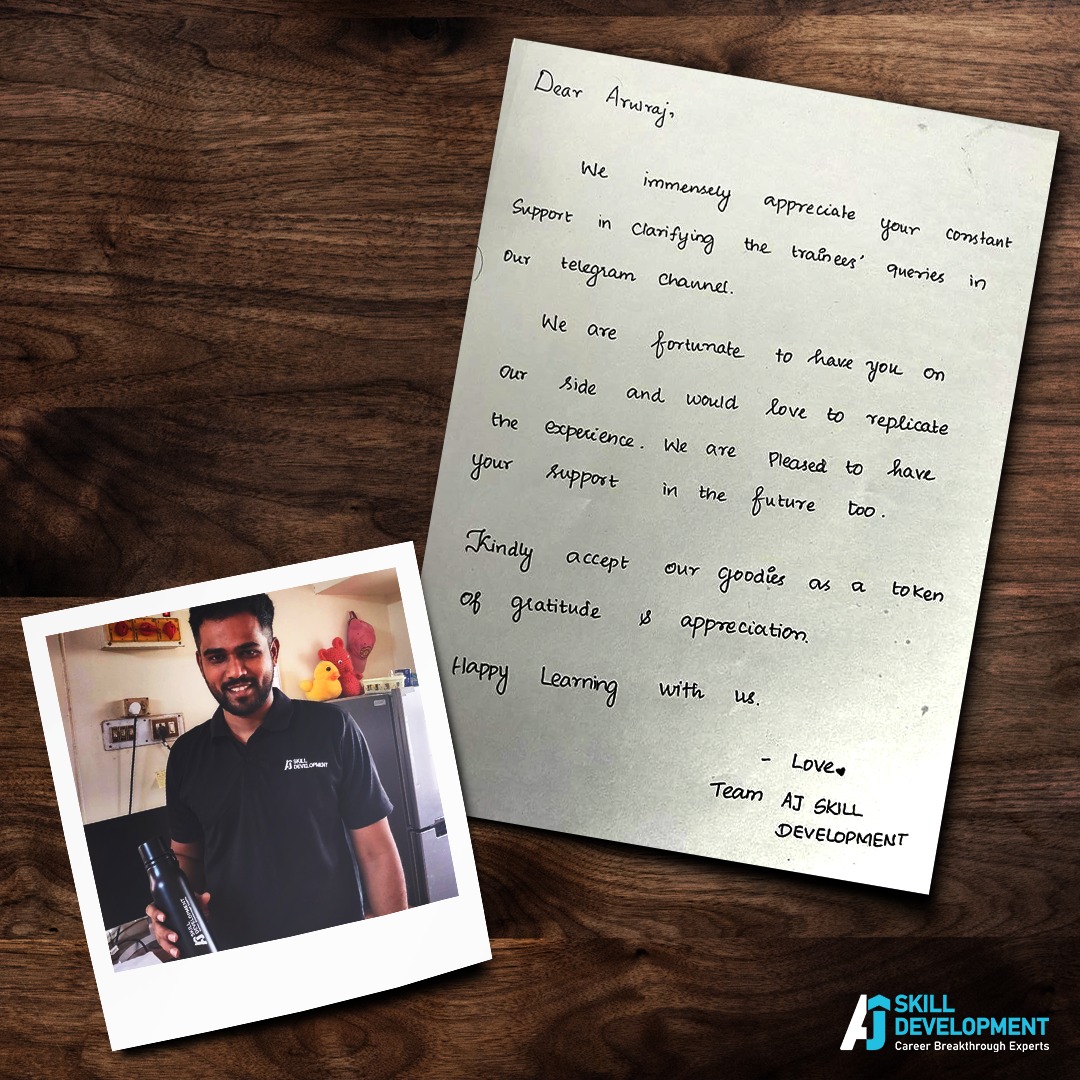 Dear Arulraj,
We immensely appreciate your constant
Support in clarifying the trainees' queries in
our telegram channel.
We are fortunate to have you on
our side and would love to replicate
the experience. We are Pleased to have
your support in the future too.
Kindly accept our goodies as a token
of gratitude & appreciation.
Happy Learning with us.
- Love♥
Team AJ SKILL
DEVELOPMENT
AJ SKILL
DEVELOPMENT
AJ SKILL
DEVELOPMENT
AJ SKILL
DEVELOPMENT
Career Breakthrough Experts